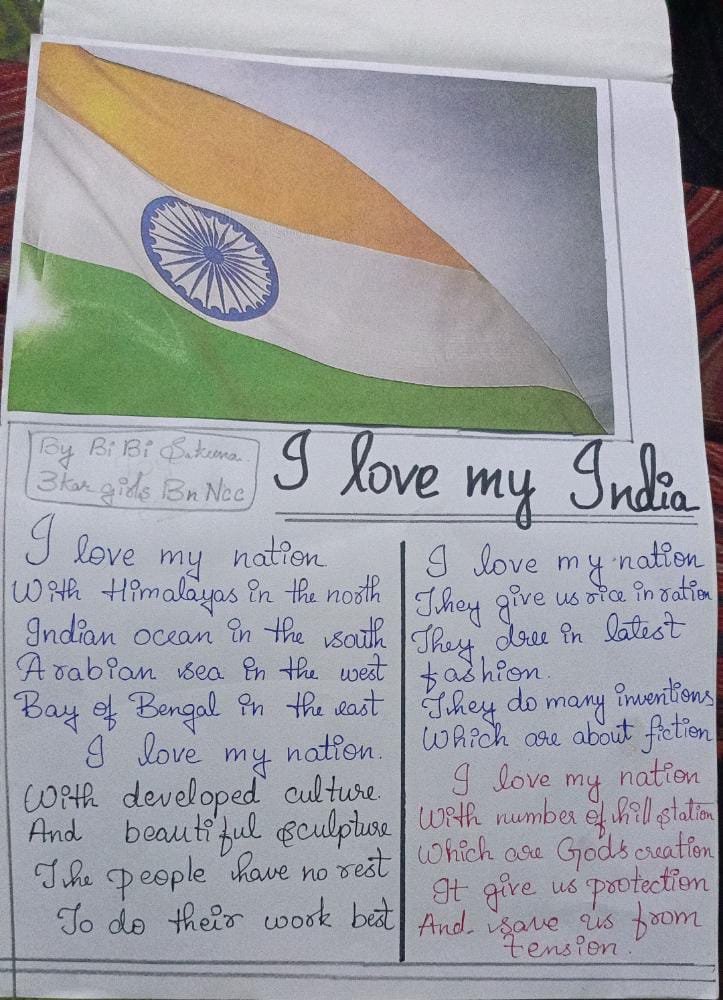 By Bi Bi Sakeena.
3kar girls Bn Ncc
I love my India
I love my nation
With Himalayas in the north
Indian ocean in the south
Arabian sea in the west
Bay of Bengal in the east
I love my nation.
With developed culture.
And beautiful sculpture
The people have no rest
To do their work best
I love my nation
They give us rice in ration
They dree in latest
fashion.
They do many inventions
Which are about fiction
I love my nation
With number of hill station
Which are Gods creation
It give us protection
And save us from
tension.